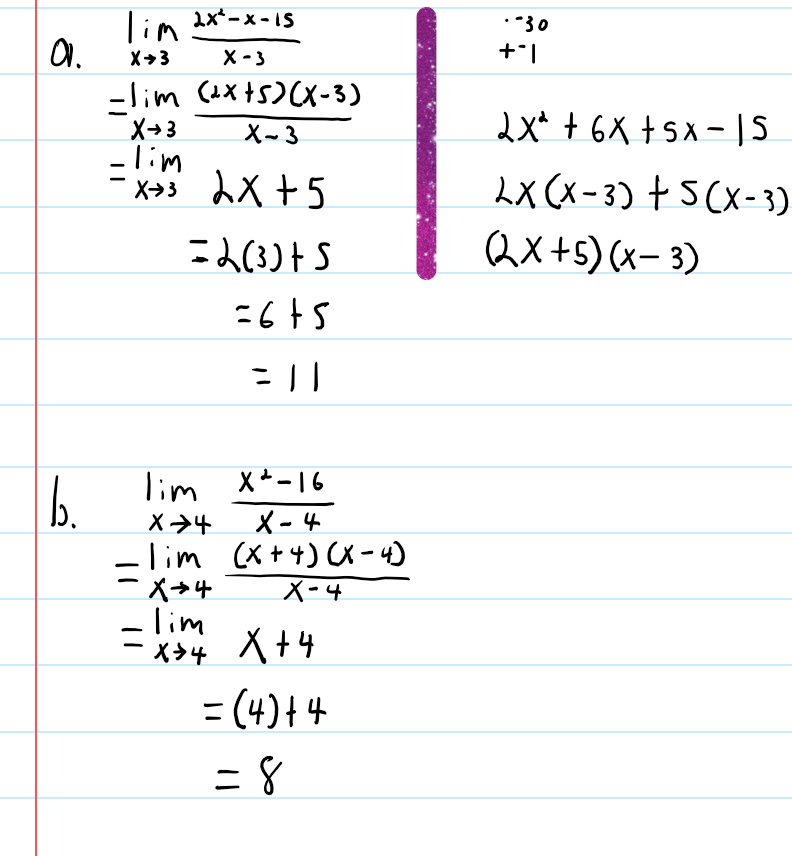 a. lim x→3 (2x²-x-15)/(x-3)
=lim x→3 ((2x+5)(x-3))/(x-3)
=lim x→3 2x+5
=2(3)+5
=6+5
=11
·-30
+-1
2x²+6x+5x-15
2x(x-3)+5(x-3)
(2x+5)(x-3)
b. lim x→4 (x²-16)/(x-4)
=lim x→4 ((x+4)(x-4))/(x-4)
=lim x→4 x+4
=(4)+4
=8